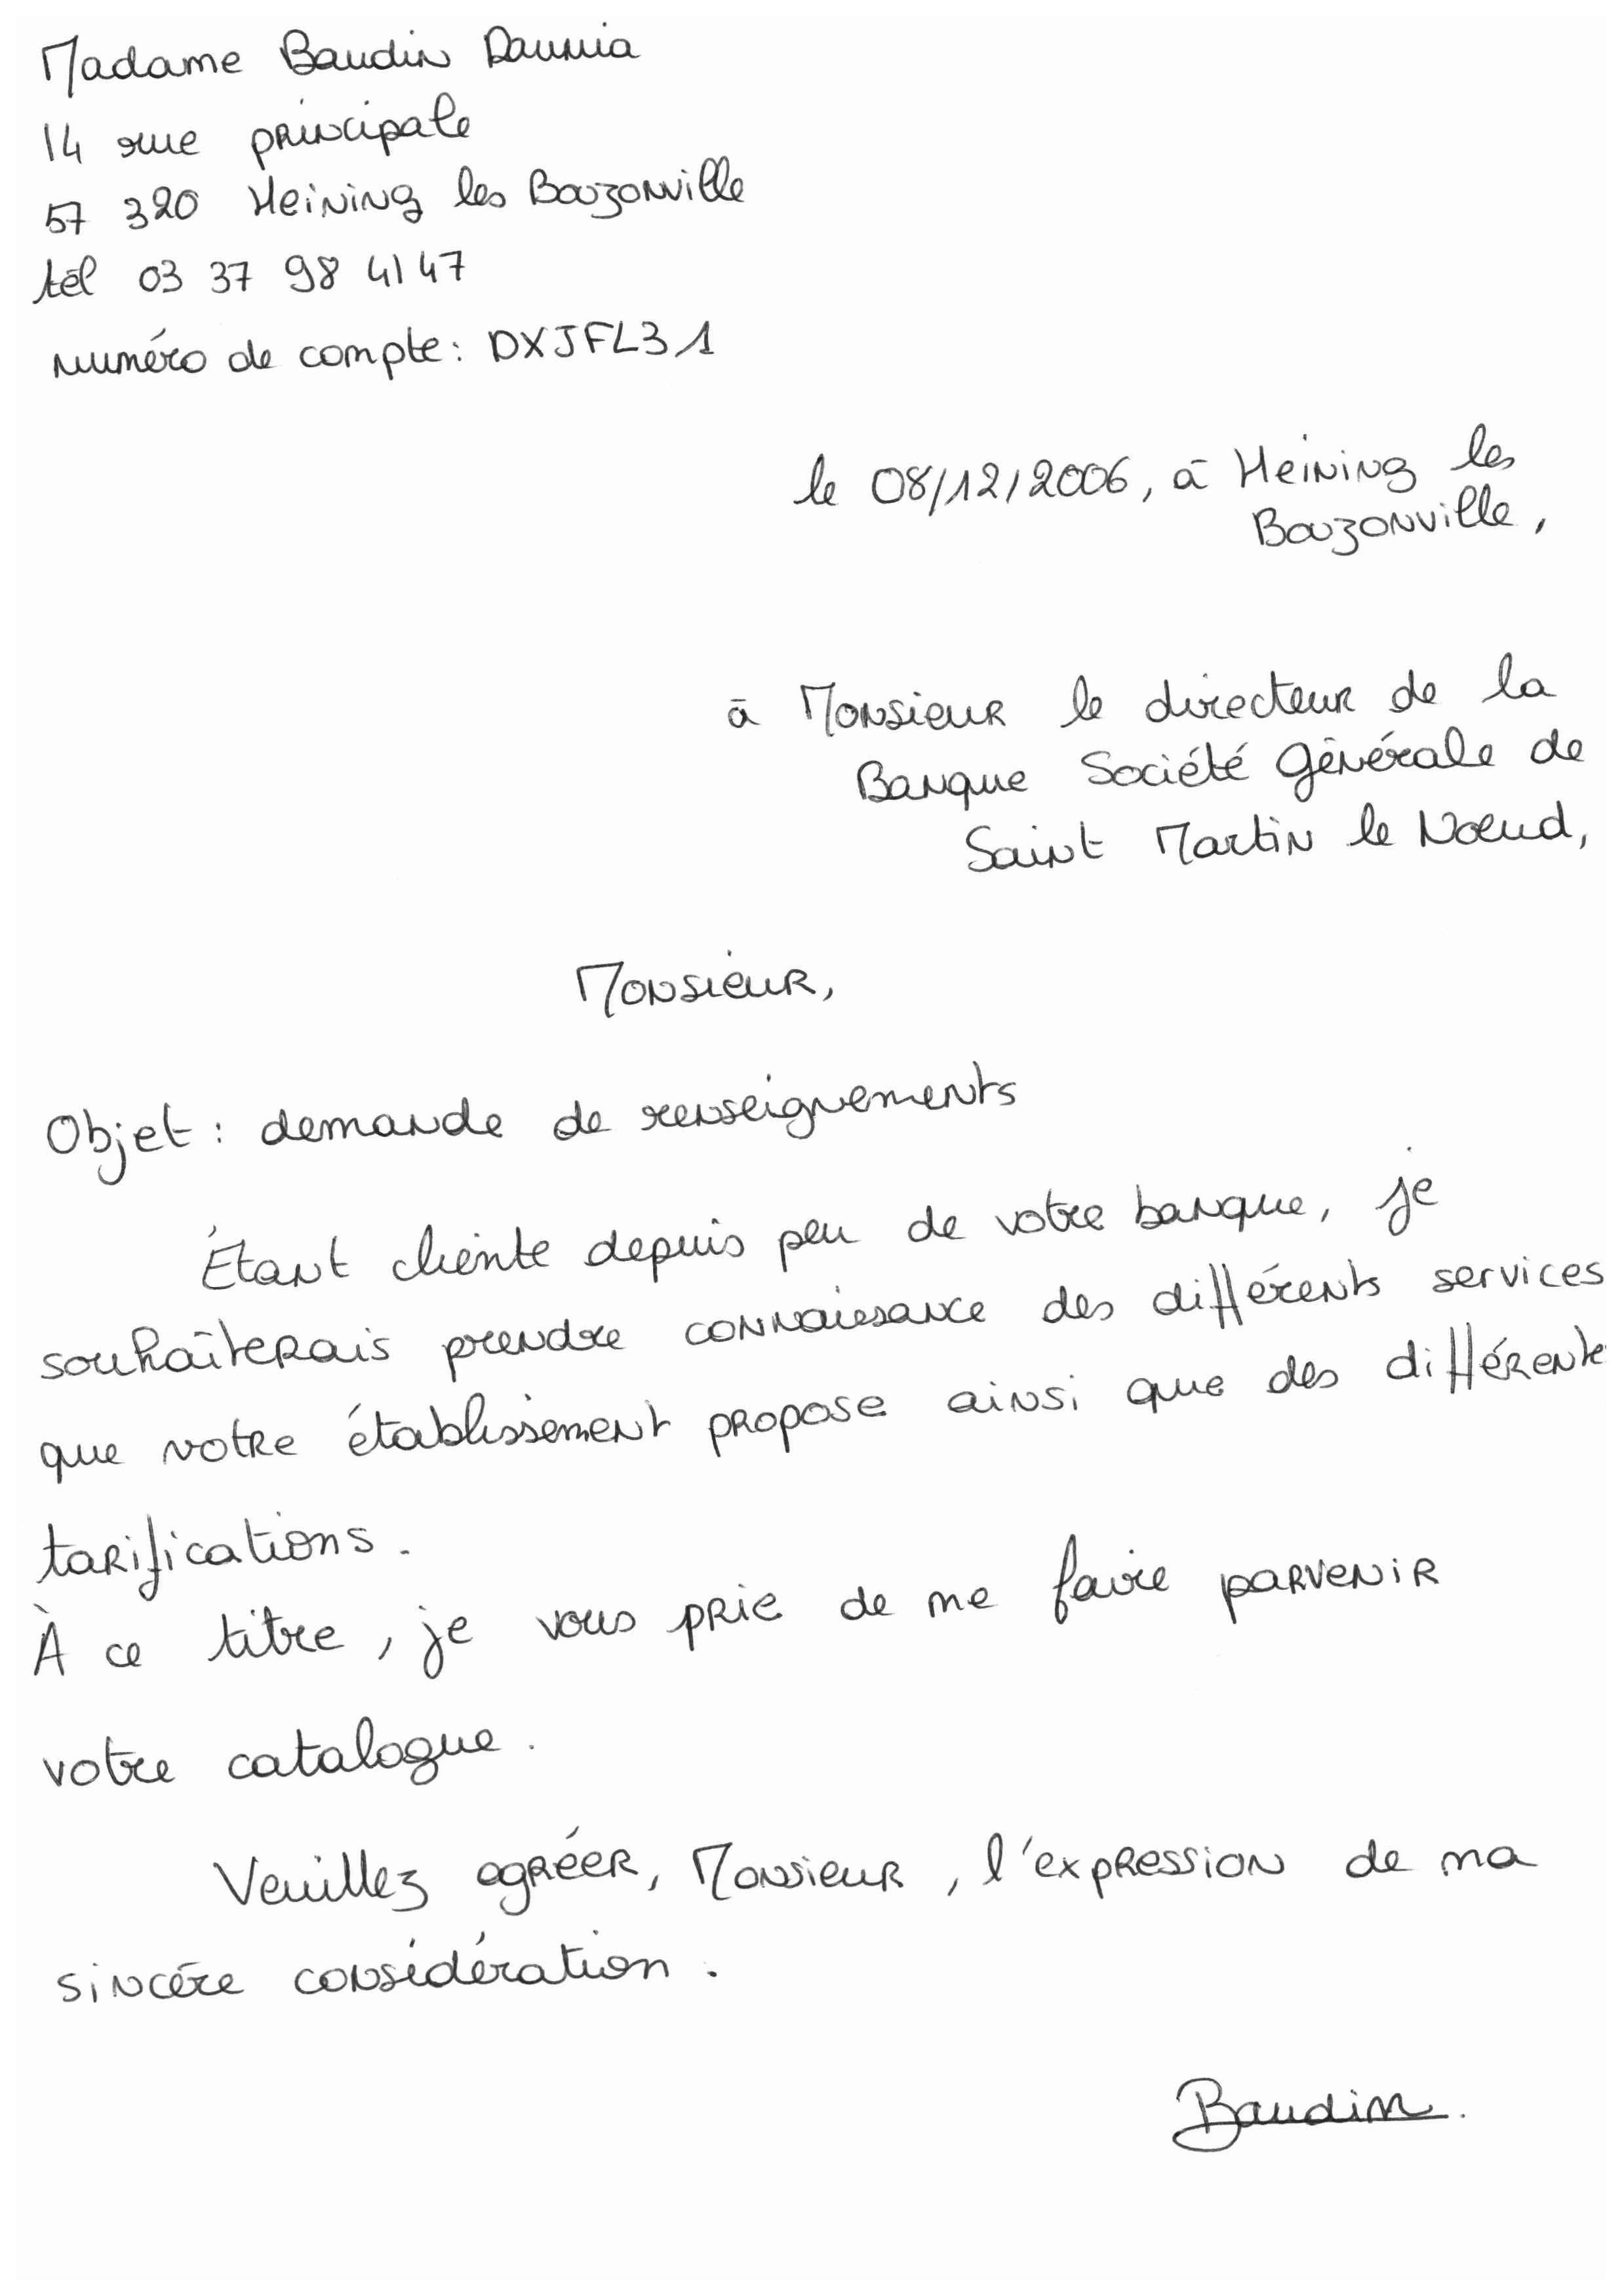 Madame Baudin Dounia
14 rue principale
57 320 Heining les Bouzonville
tél 03 37 98 41 47
numéro de compte : DXJFL31
le 08/12/2006, à Heining les
Bouzonville,
à Monsieur le directeur de la
Banque Société Générale de
Saint Martin le Noeud,
Monsieur,
Objet : demande de renseignements
Étant cliente depuis peu de votre banque, je
souhaiterais prendre connaissance des différents services
que votre établissement propose ainsi que des différente
tarifications.
À ce titre, je vous prie de me faire parvenir
votre catalogue.
Veuillez agréer, Monsieur, l'expression de ma
sincère considération.
Baudin.